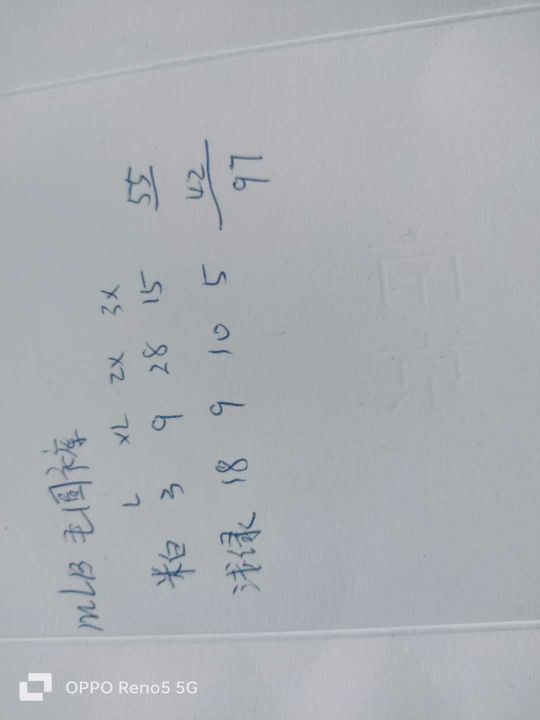 MLB 毛圈衣库
L XL 2X 3X
米白 3 9 28 15 55
浅绿 18 9 10 5 42
97
OPPO Reno5 5G